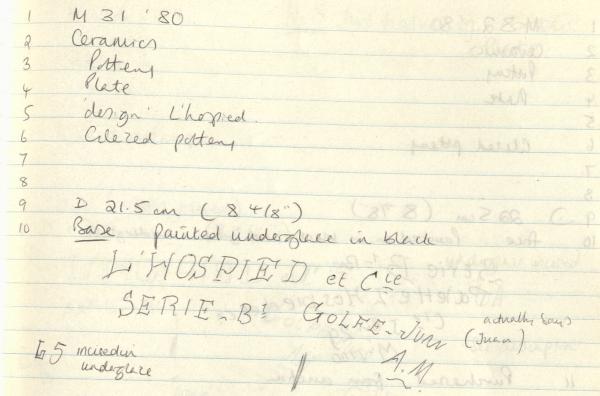 1 M 31 '80
2 Ceramics
3 Pottery
4 Plate
5 'design' L'hospied.
6 Glazed pottery
7
8
9 D 21.5 cm (8 4/8")
10 Base painted underglaze in black
L'HOSPIED et Cie
SERIE-B
GOLFE-Juan
actually says
(Juan)
A.M
65 incised in
underglaze